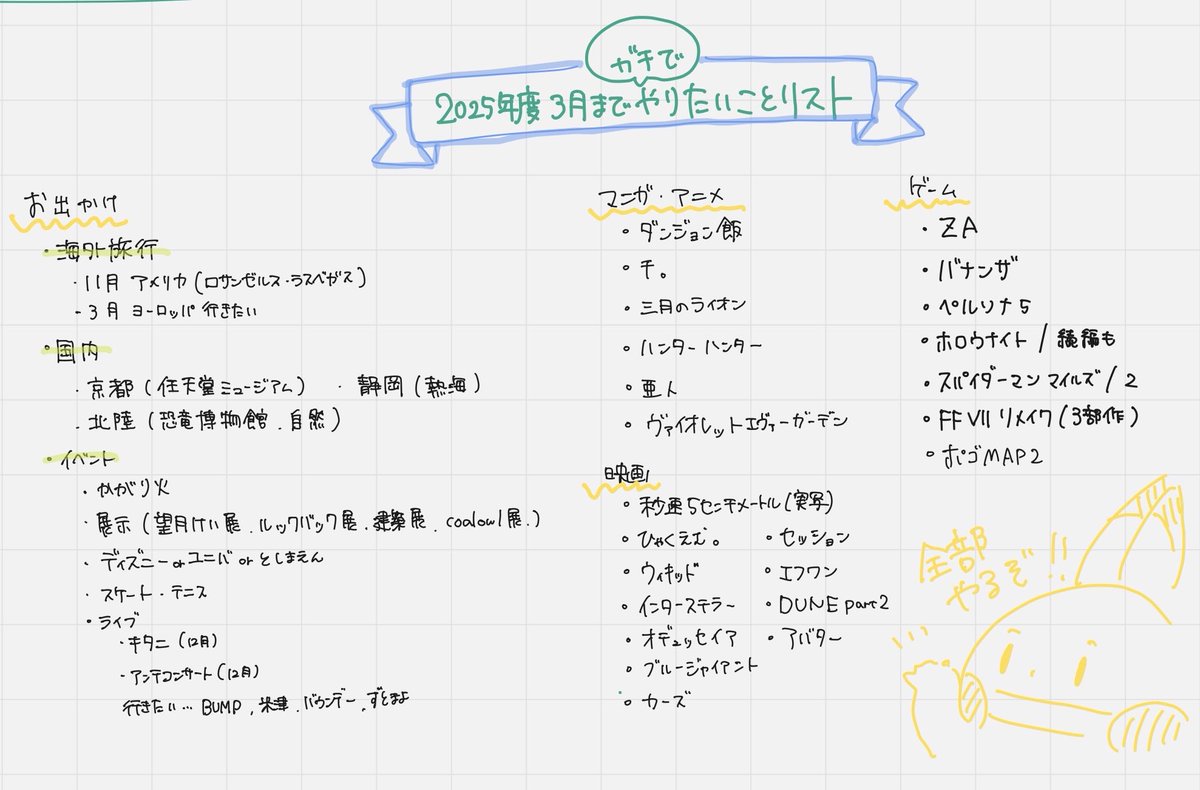 ガチで
2025年度 3月までやりたいことリスト
お出かけ
・海外旅行
・11月 アメリカ (ロサンゼルス・ラスベガス)
・3月 ヨーロッパ 行きたい
・国内
・京都 (任天堂ミュージアム) ・静岡 (熱海)
・北陸 (恐竜博物館、自然)
・イベント
・かがり火
・展示 (望月けい展、ルックバック展、建築展、coalowl展、)
・ディズニー or ユニバ or としまえん
・スケート・テニス
・ライブ
・キタニ (12月)
・アンテコンサート (12月)
行きたい… BUMP、米津、バウンデー、ずとまよ
マンガ・アニメ
・ダンジョン飯
・チ。
・三月のライオン
・ハンターハンター
・亜人
・ヴァイオレットエヴァーガーデン
映画
・秒速5センチメートル (実写)
・ひゃくえむ。
・ウィキッド
・インターステラー
・オデュッセイア
・ブルージャイアント
・カーズ
・セッション
・エフワン
・DUNE part2
・アバター
ゲーム
・ZA
・バナンザ
・ペルソナ5
・ホロウナイト / 続編も
・スパイダーマン マイルズ / 2
・FF VII リメイク (3部作)
・ポゴMAP2
全部
やるぞ!!